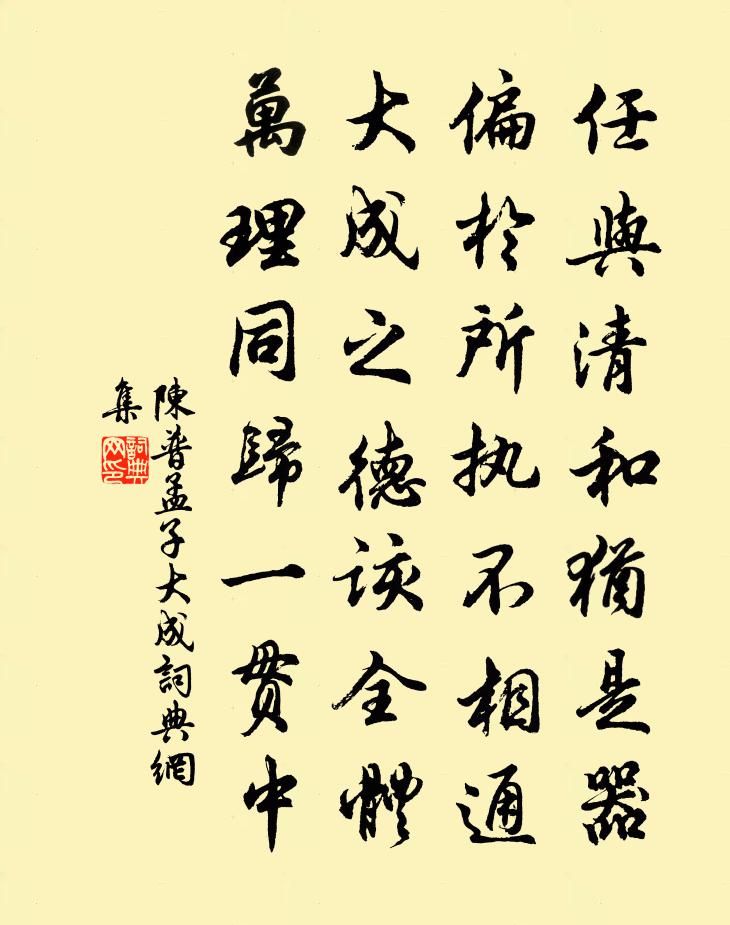 任與清和猶是器
偏於所执不相通
大成之德該全體
萬理同歸一贯中
陳普孟子大成詞典網
集
詞典
网印